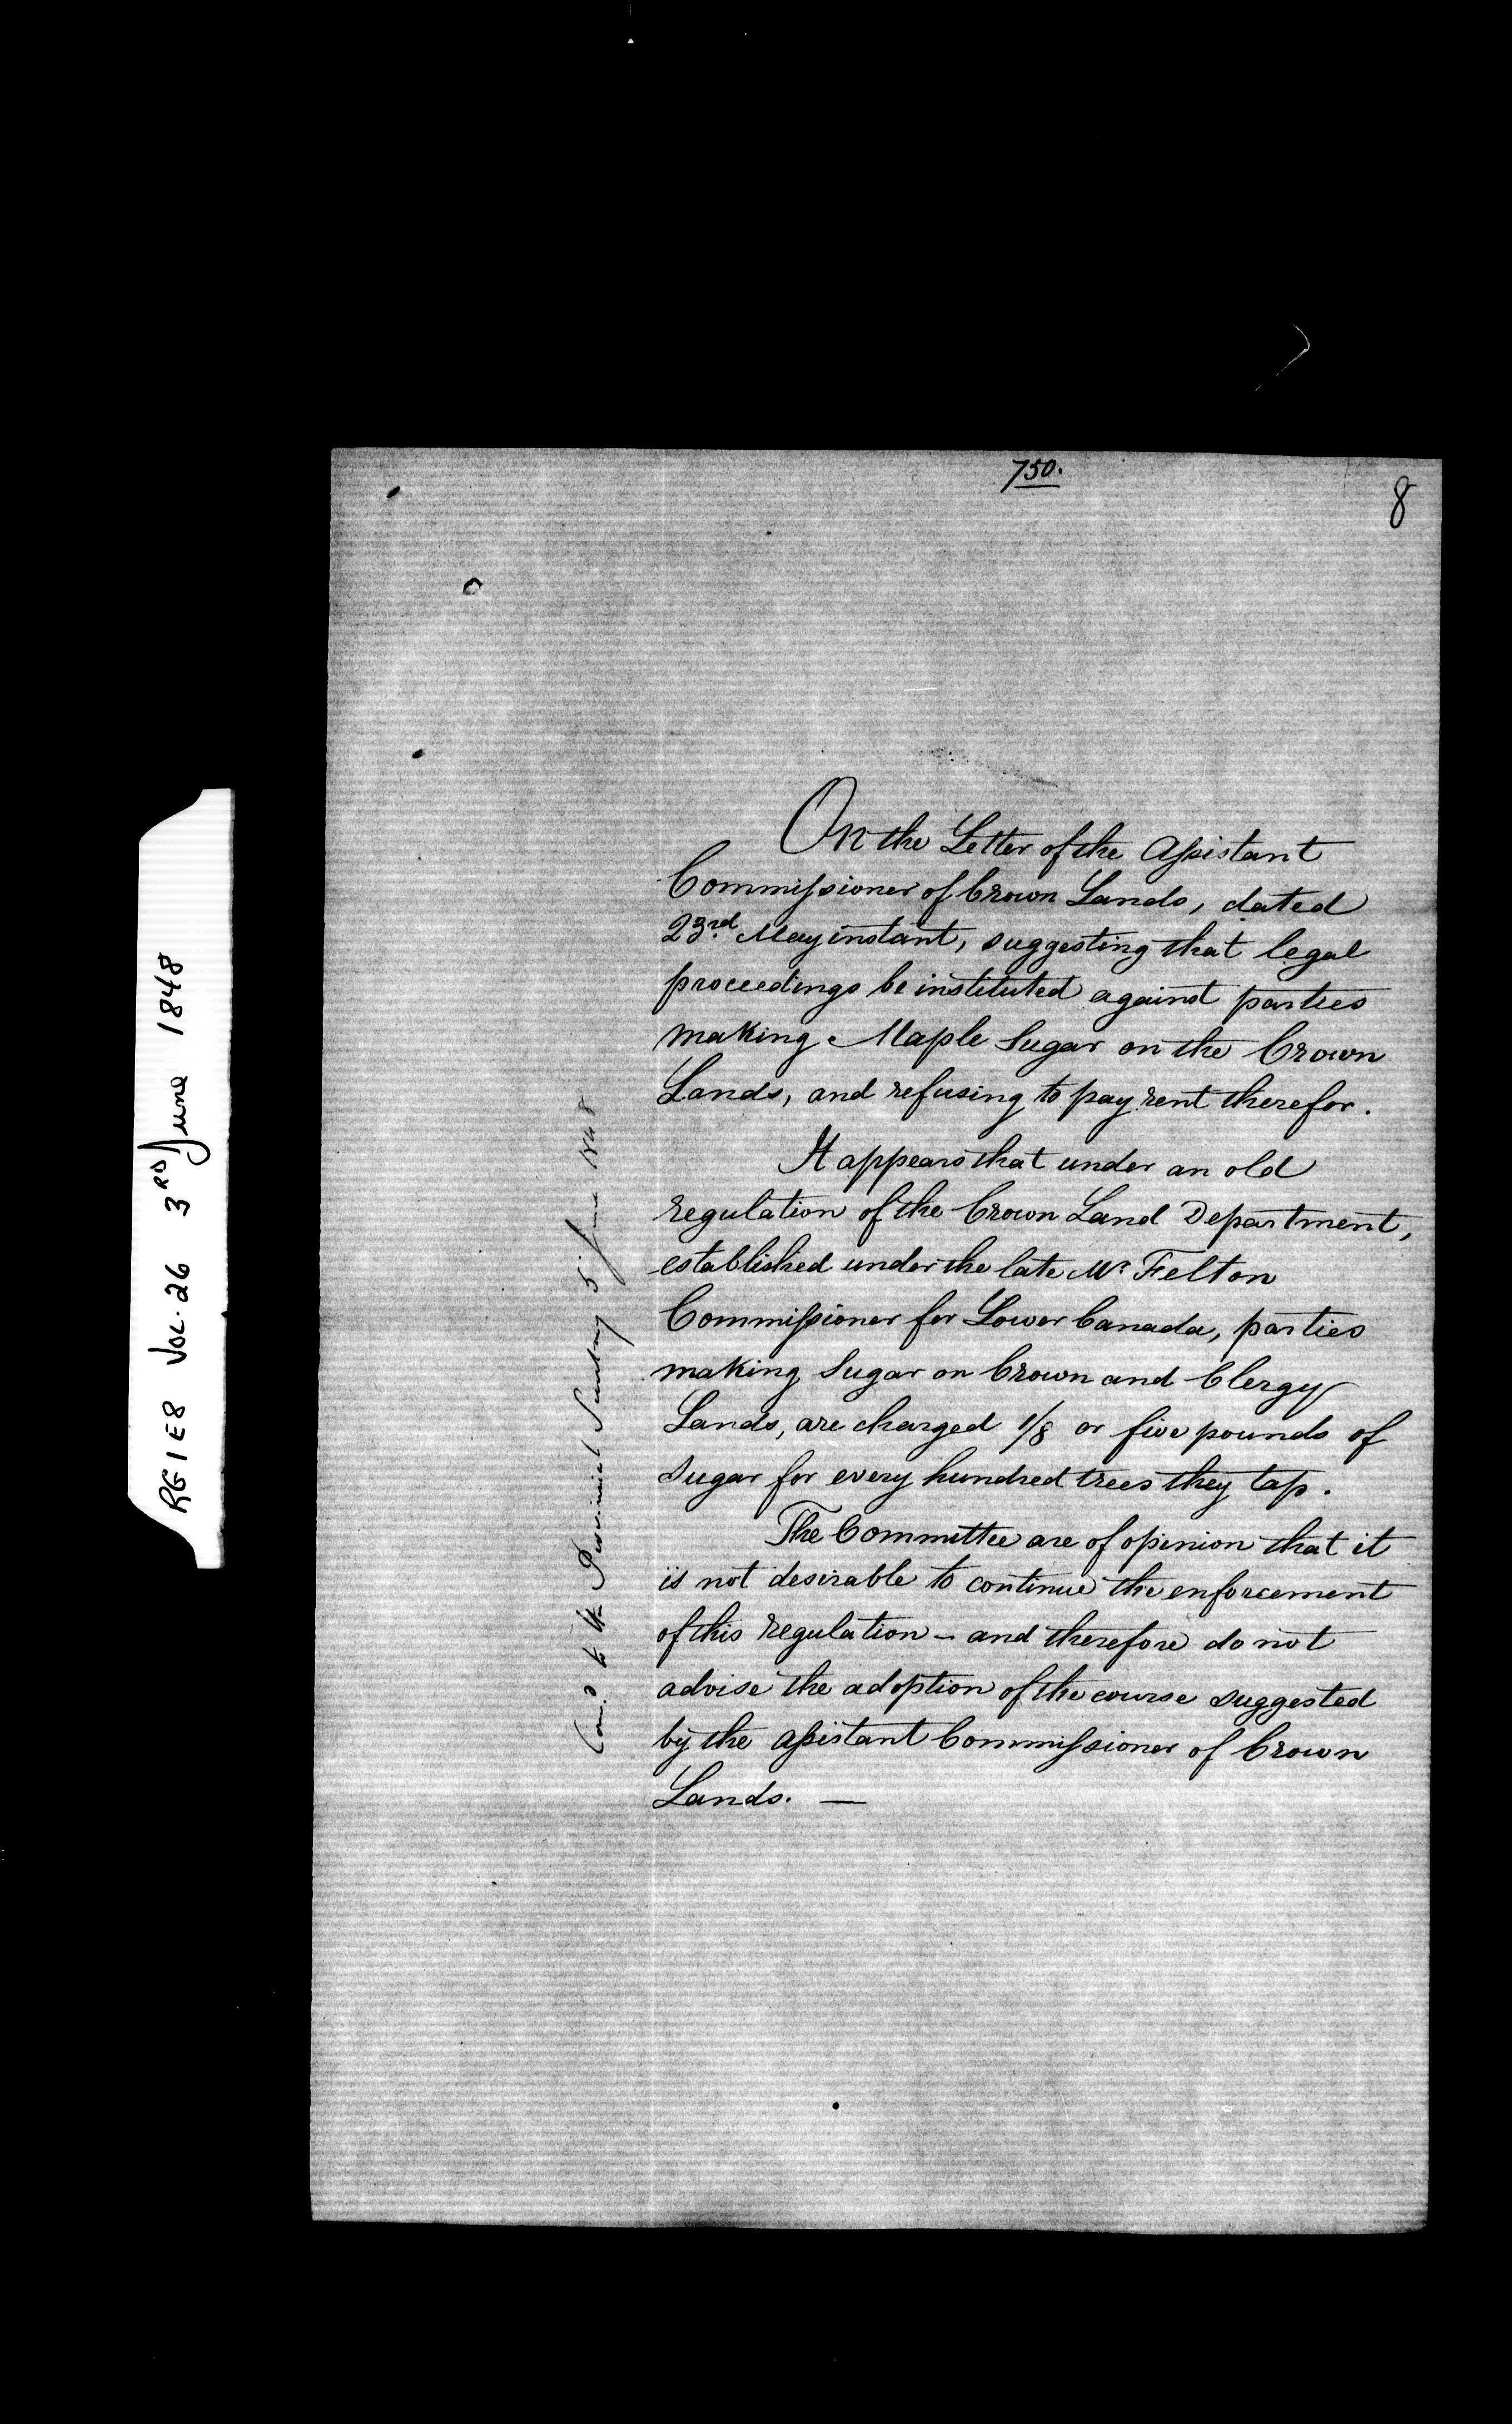 750.
8
On the Letter of the Assistant
Commissioner of Crown Lands, dated
23rd May instant, suggesting that legal
proceedings be instituted against parties
making Maple Sugar on the Crown
Lands, and refusing to pay rent therefor.
It appears that under an old
regulation of the Crown Land Department,
established under the late Mr. Felton
Commissioner for Lower Canada, parties
making Sugar on Crown and Clergy
Lands, are charged 1/8 or five pounds of
Sugar for every hundred trees they tap.
The Committee are of opinion that it
is not desirable to continue the enforcement
of this regulation – and therefore do not
advise the adoption of the course suggested
by the Assistant Commissioner of Crown
Lands. —
to the Provincial Secretary 5 June 1848
RG 1 E8 VOL. 26 3RD June 1848